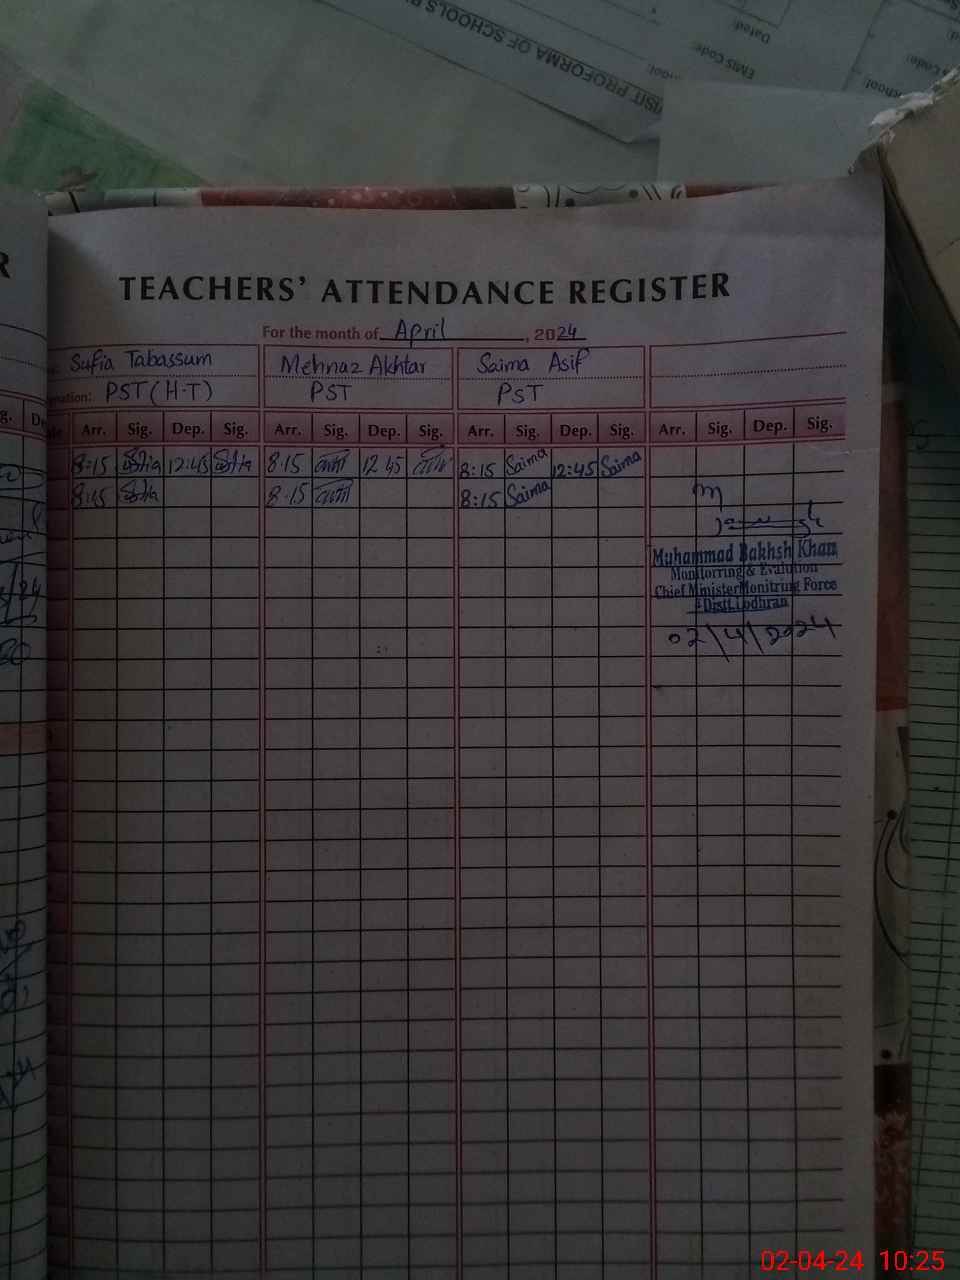 VISIT PROFORMA OF SCHOOLS
Dated:
EMIS Code:
TEACHERS' ATTENDANCE REGISTER
For the month of April , 2024
Sufia Tabassum Mehnaz Akhtar Saima Asif
PST (H-T) PST PST
Arr. Sig. Dep. Sig. Arr. Sig. Dep. Sig. Arr. Sig. Dep. Sig. Arr. Sig. Dep. Sig.
8:15 12:45 8:15 12 45 8:15 Saima 12:45 Saima
8:15 8:15 8:15 Saima
Muhammad Bakhsh Khan
Monitorring & Evalution
Chief Minister Monitring Force
Distt. Lodhran
02/4/2024
02-04-24 10:25